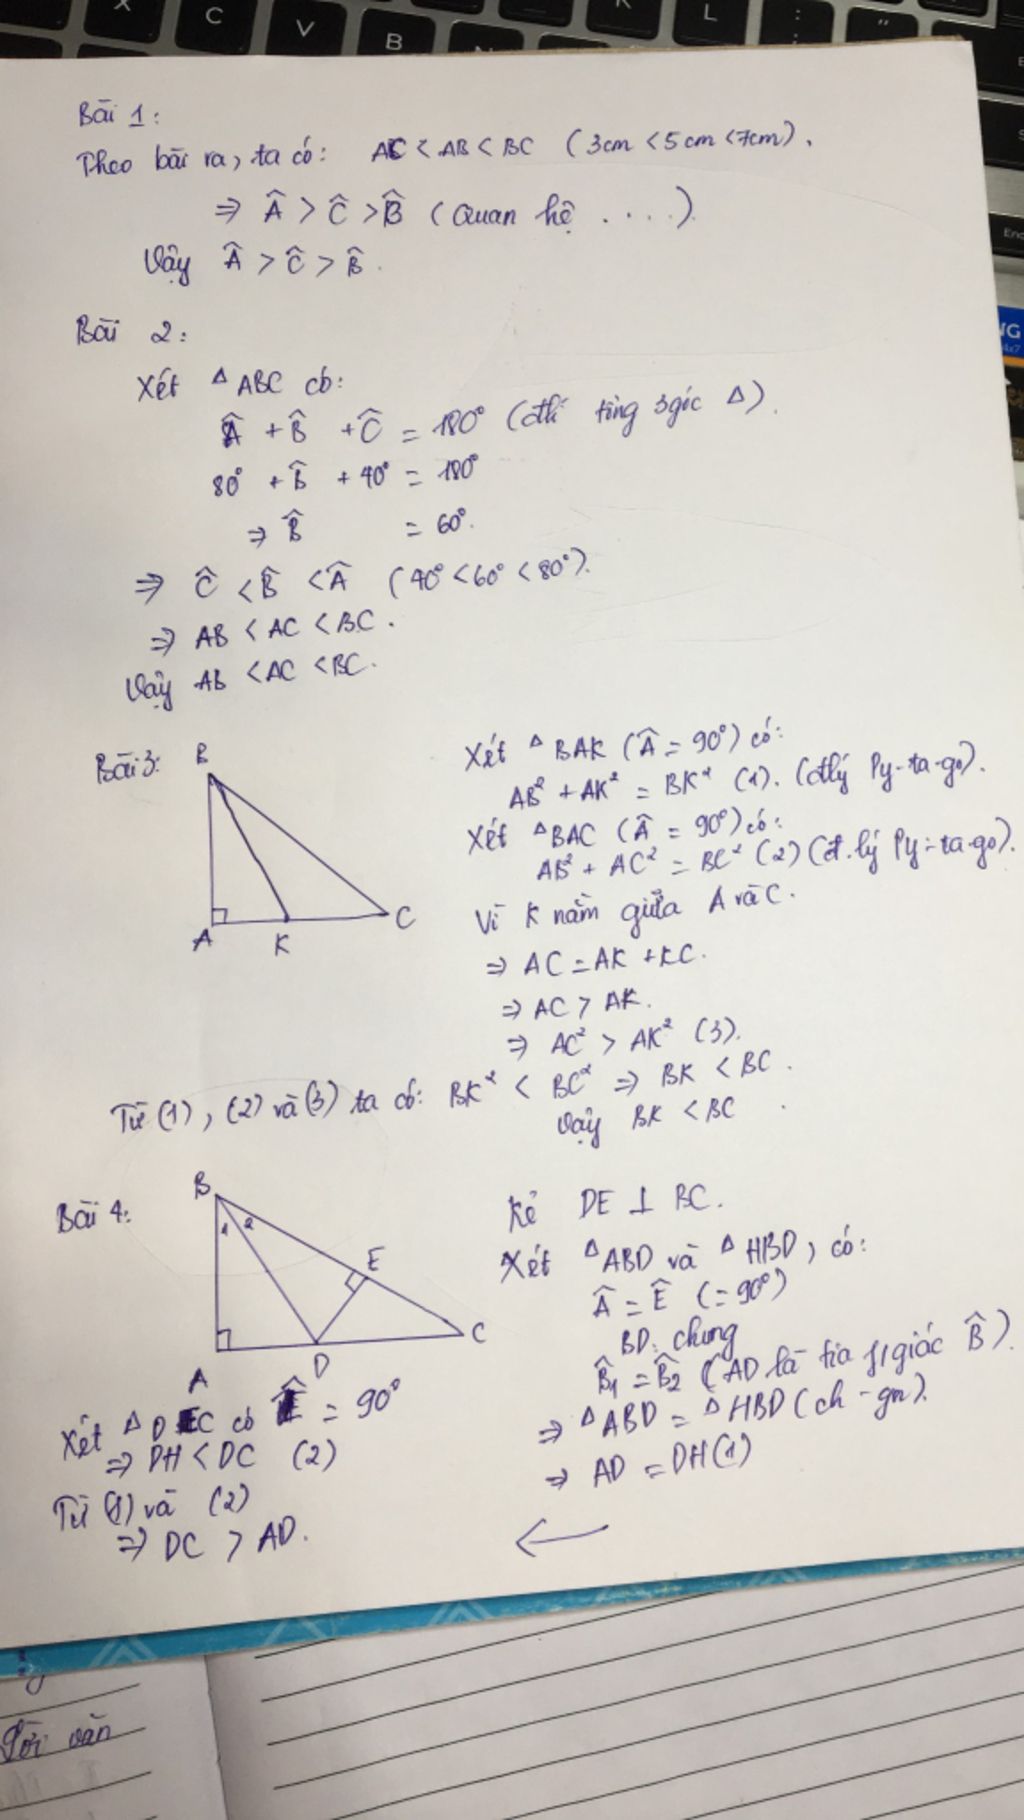 Bài 1:
Theo bài ra, ta có: AC < AB < BC (3cm < 5cm < 7cm).
⇒ Â > Ĉ > B̂ (Quan hệ ....).
Vậy Â > Ĉ > B̂.
Bài 2:
Xét △ABC có:
Â + B̂ + Ĉ = 180° (đlí tổng 3 góc △).
80° + B̂ + 40° = 180°
⇒ B̂ = 60°.
⇒ Ĉ < B̂ < Â (40° < 60° < 80°).
⇒ AB < AC < BC.
Vậy AB < AC < BC.
Bài 3:
B
A
K
C
Xét △BAK (Â = 90°) có:
AB² + AK² = BK² (1). (đlý Py-ta-go).
Xét △BAC (Â = 90°) có:
AB² + AC² = BC² (2) (đ.lý Py-ta-go).
Vì K nằm giữa A và C.
⇒ AC = AK + KC.
⇒ AC > AK.
⇒ AC² > AK² (3).
Từ (1), (2) và (3) ta có: BK² < BC² ⇒ BK < BC.
Vậy BK < BC.
Bài 4:
B
1 2
E
C
D
A
Kẻ DE ⊥ BC.
Xét △ABD và △HBD, có:
Â = Ê (= 90°)
BD: chung
B̂₁ = B̂₂ (AD là tia p/giác B̂).
⇒ △ABD = △HBD (ch - gn).
⇒ AD = DH (1)
Xét △DEC có Ê = 90°
⇒ DH < DC (2)
Từ (1) và (2)
⇒ DC > AD.
X
C
V
B
K
L
: ;
"
Enc
NG
4x7
Lời văn